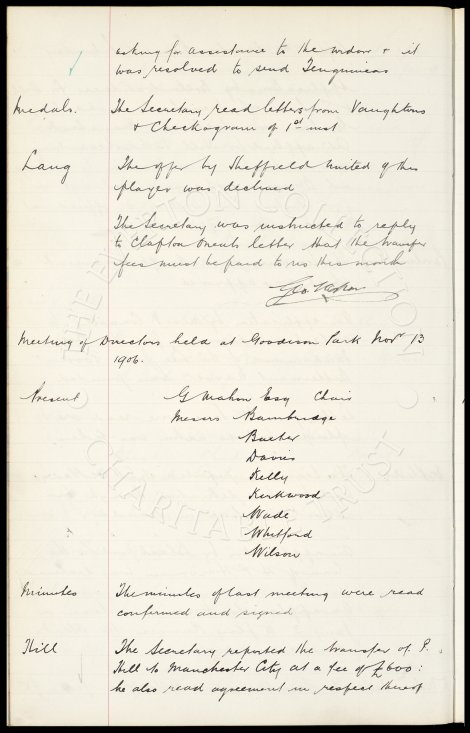 asking for assistance to the widow & it
was resolved to send Ten guineas
Medals. The Secretary read letters from Vaughtons
& Checkogram of 1st inst
Lang The offer by Sheffield United of this
player was declined
The Secretary was instructed to reply
to Clapton Orients letter that the transfer
fees must be paid to us this month
Geo Mahon
Meeting of Directors held at Goodison Park Novr 13
1906.
Present G Mahon Esq Chair
Messrs Bainbridge
Baxter
Davies
Kelly
Kirkwood
Wade
Whitford
Wilson
Minutes The minutes of last meeting were read
confirmed and signed
Hill The Secretary reported the transfer of P.
Hill to Manchester City at a fee of £600:
he also read agreement in respect thereof
THE EVERTON COLLECTION
CHARITABLE TRUST